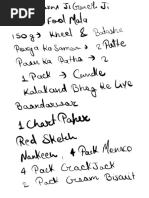 Ji Ganesh Ji
Fool Mala
150g → Kheel & Batashe
Pooja Ka Saman → 2 Patte
Paan Ka Patta → 2
1 Pack → Candle
Kalakand Bhag Ke Liye
Baandarwar
1 Chart Paper
Red Sketch
Namkeen, 4 Pack Monaco
4 Pack CrackJack
2 Pack Cream Biscuit